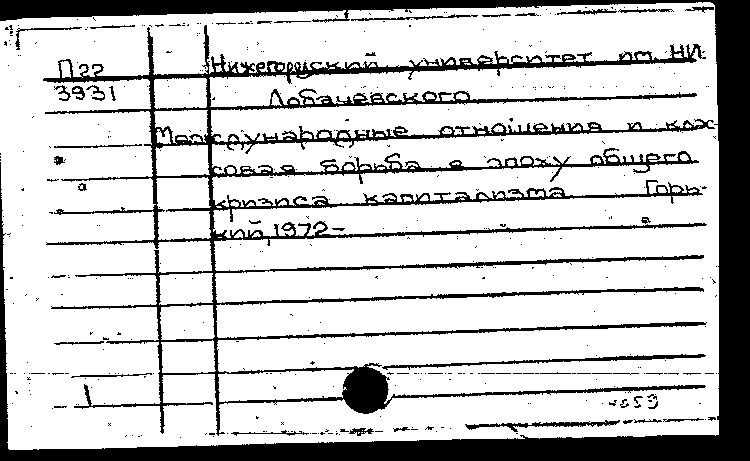 П22 Нижегородский университет им. НИ.
3931 Лобачевского
Международные отношения и клас-
совая борьба в эпоху общего
кризиса капитализма Горь-
кий, 1972-